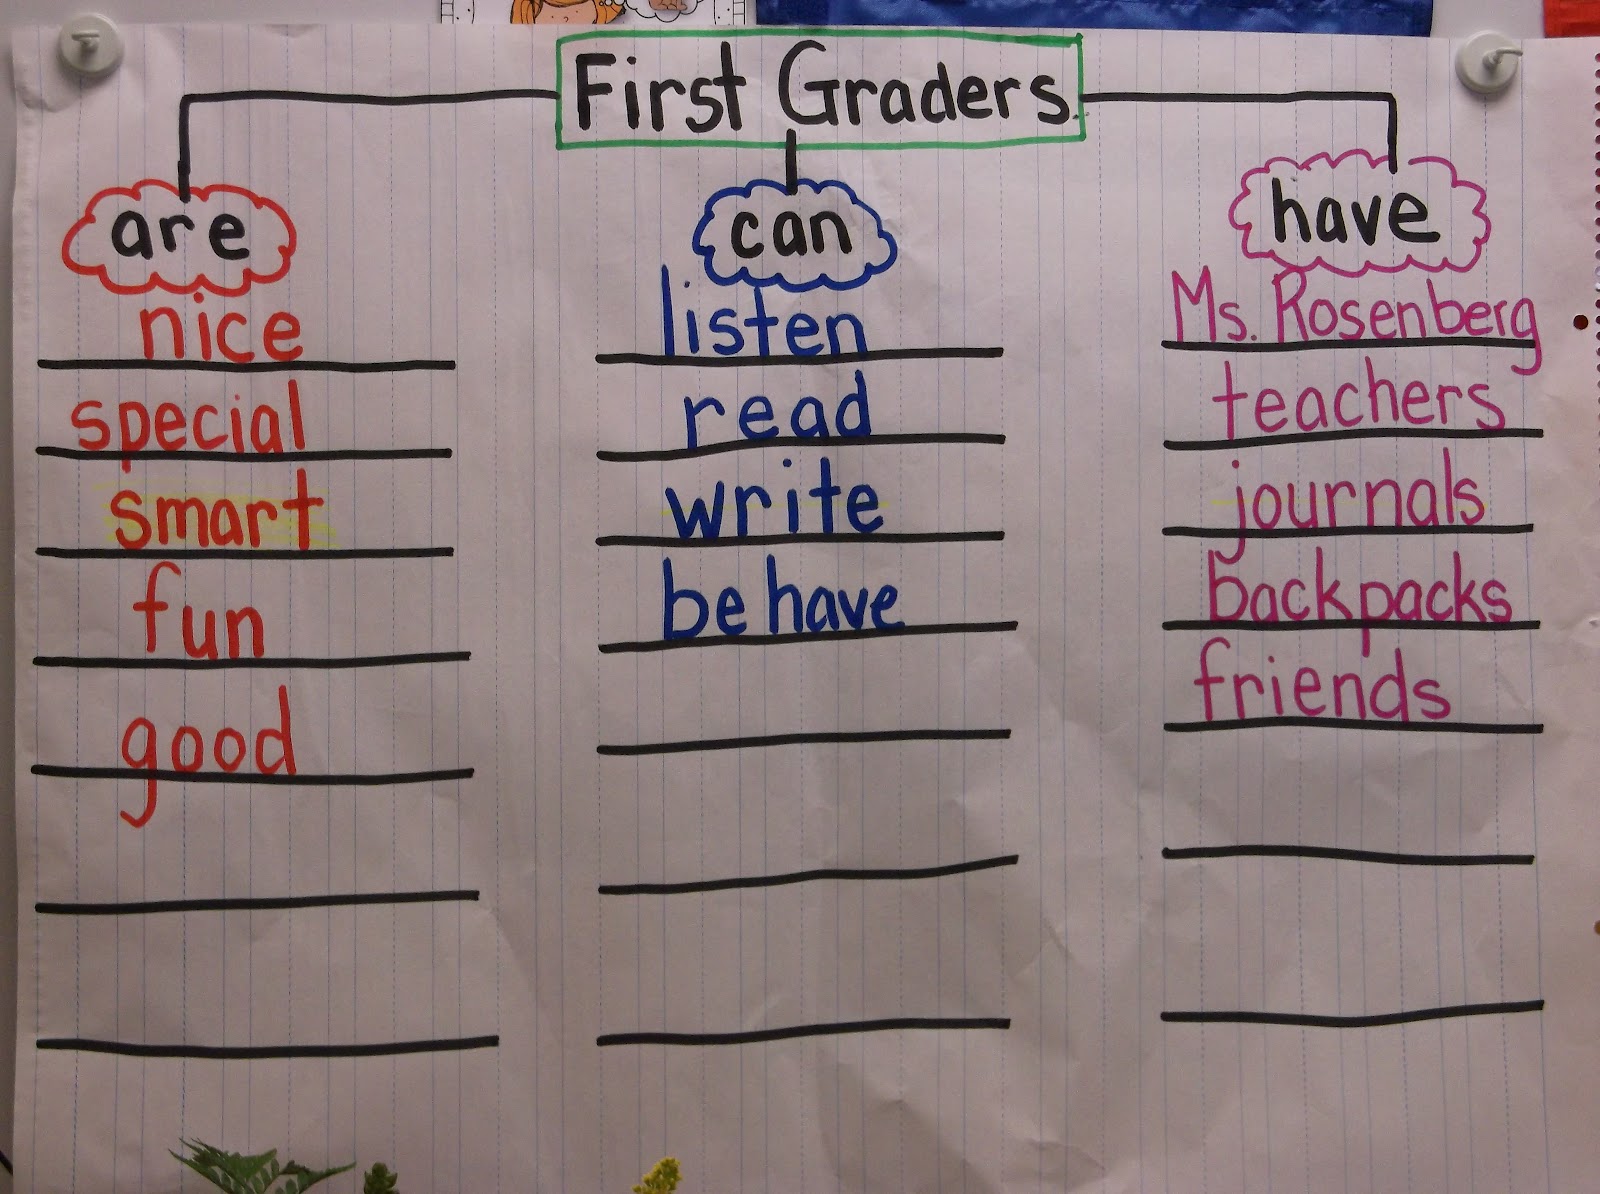 First Graders
are
nice
special
smart
fun
good
can
listen
read
write
behave
have
Ms. Rosenberg
teachers
journals
backpacks
friends